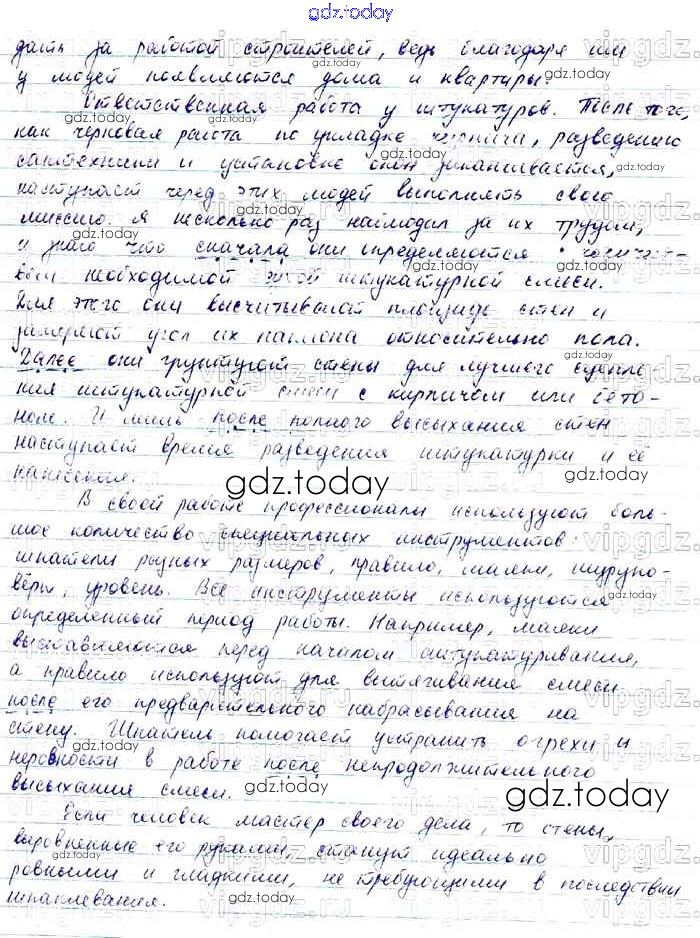 gdz.today
дать за работой строителей, ведь благодаря им
у людей появляются дома и квартиры.
Ответственная работа у штукатуров. После того,
как черновая работа по укладке кирпича, разведению
сантехники и установке окон заканчивается,
наступает черед этих людей выполнять свою
миссию. Я несколько раз наблюдал за их трудом,
и знаю что сначала они определяются с количест-
вом необходимой штукатурной смеси.
Для этого они высчитывают площадь стен и
замеряют угол их наклона относительно пола.
Далее они грунтуют стены для лучшего сцепле-
ния штукатурной смеси с кирпичом или бето-
ном. И лишь после полного высыхания стен
наступает время разведения штукатурки и её
нанесения.
gdz.today
В своей работе профессионалы используют боль-
шое количество специальных инструментов:
шпатели разных размеров, правило, маяки, шурупо-
вёрт, уровень. Все инструменты используются
определенный период работы. Например, маяки
выставляются перед началом оштукатуривания,
а правило используют для вытягивания смеси
после его предварительного набрасывания на
стену. Шпатель помогает устранить огрехи и
неровности в работе после непродолжительного
высыхания смеси.
gdz.today
Если человек мастер своего дела, то стены,
выровненные его руками, станут идеально
ровными и гладкими, не требующими в последствии
шпаклевания.